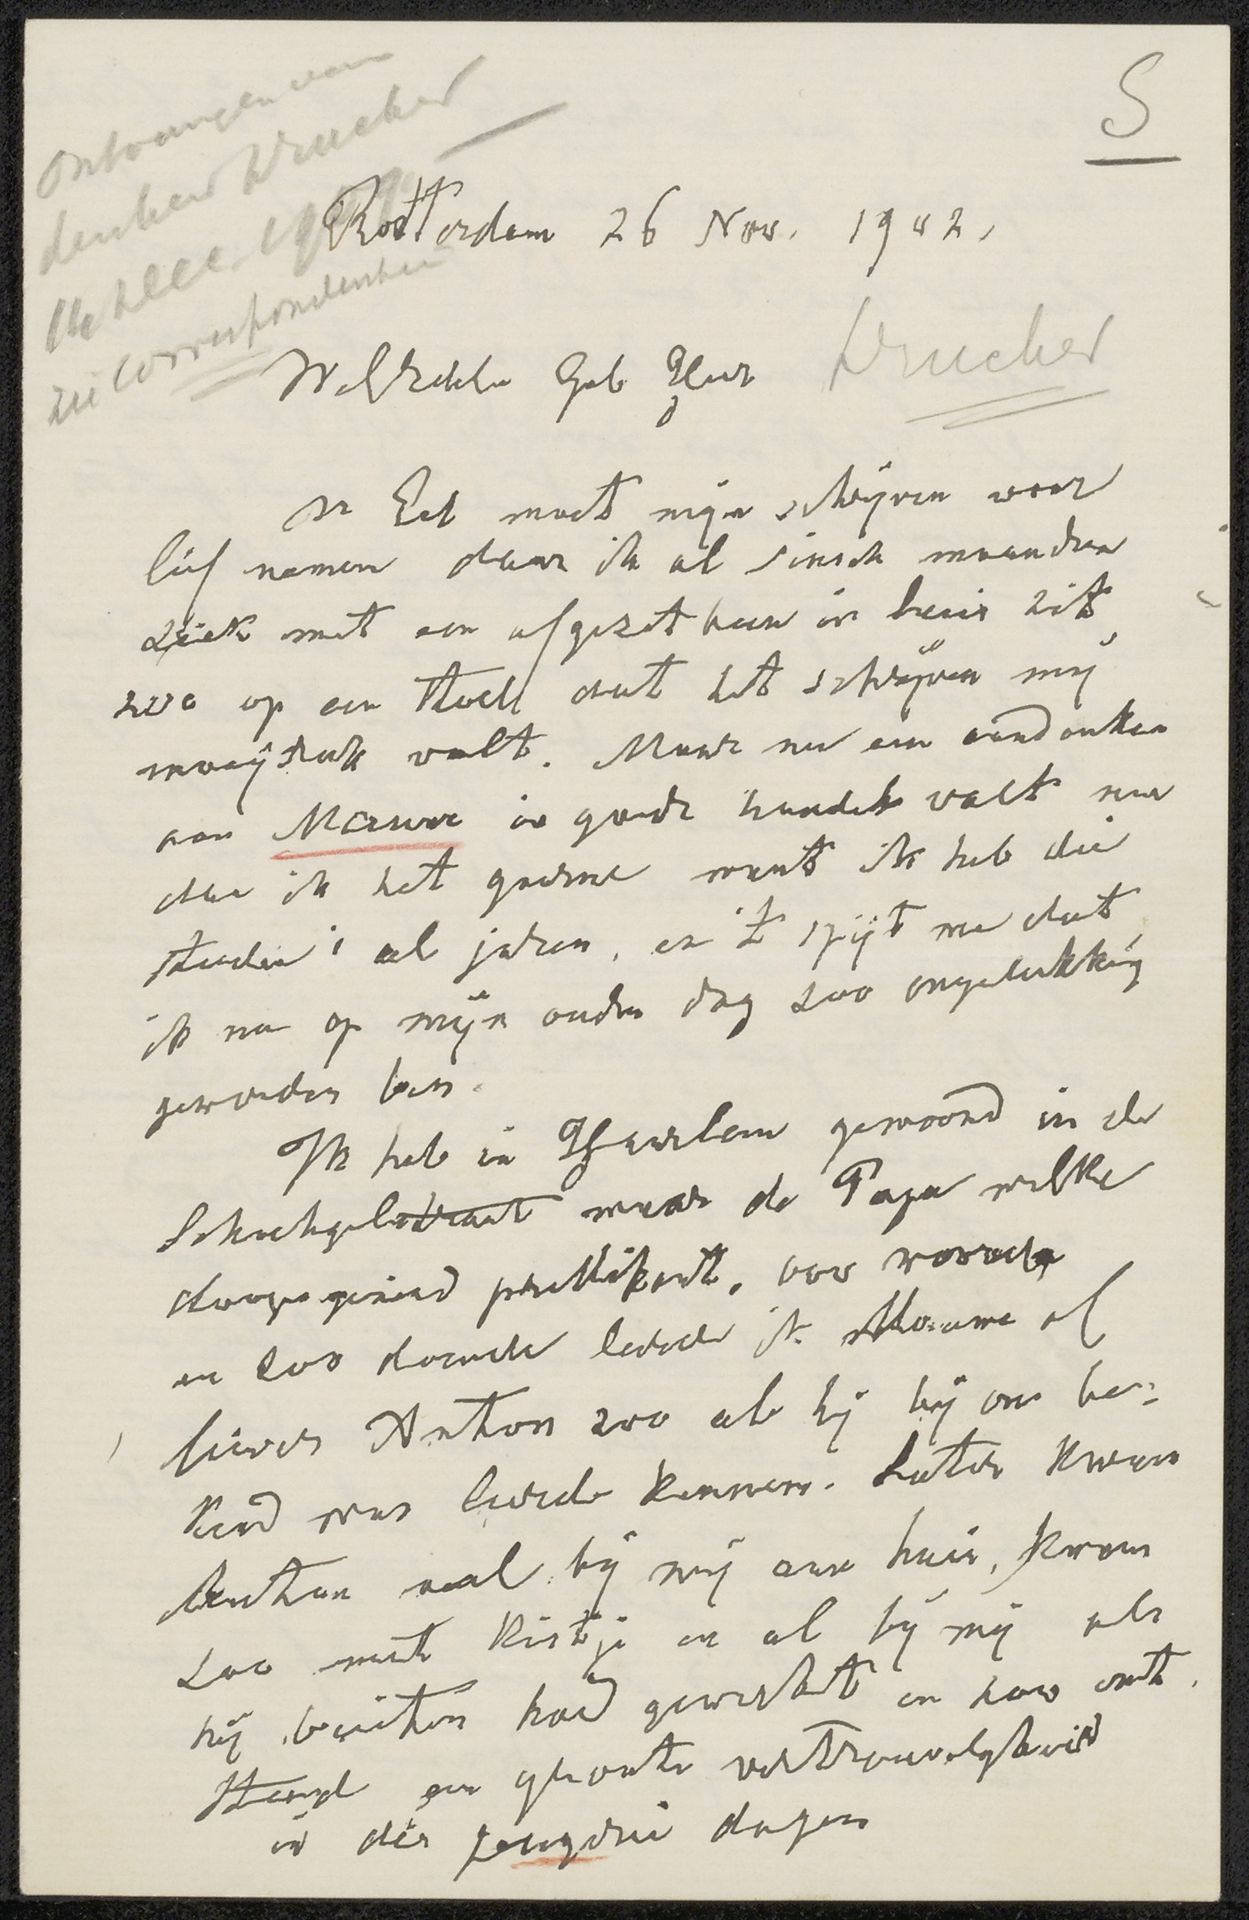 S
ontvangen van
den heer Drucker
Rotterdam 26 Nov. 1902.
zie correspondentie
Drucker
WelEdele Geb Heer
UEd moet mijn schrijven voor
lief nemen daar ik al sinds maanden
ziek met een afgezet been in huis zit
zoo op een stoel dat het schrijven mij
moeijelijk valt. Maar nu een aandenken
aan Mauve in goede handen valt nu
doe ik het gaarne want ik heb die
studie's al jaren, en 't spijt me dat
ik nu op mijn ouden dag zoo ongelukkig
geworden ben.
Ik heb in Haarlem gewoond in de
waar de Papa welke
doopsgezind predikant, was woonde
en zoo doende leerde ik Mauve of
liever Anton zoo als hij bij ons be-
kend was leerde kennen. Later kwam
Anthon veel bij mij aan huis, kwam
zoo met kistje en al bij mij als
hij buiten had gewerkt en zoo ont-
stond een groote vertrouwelijkheid
in die dagen